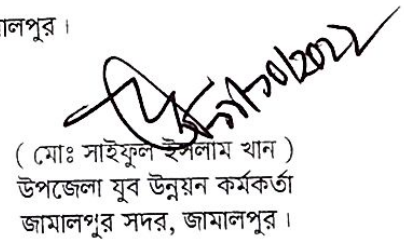 ালপুর ।
( মোঃ সাইফুল ইসলাম খান )
উপজেলা যুব উন্নয়ন কর্মকর্তা
জামালপুর সদর, জামালপুর ।